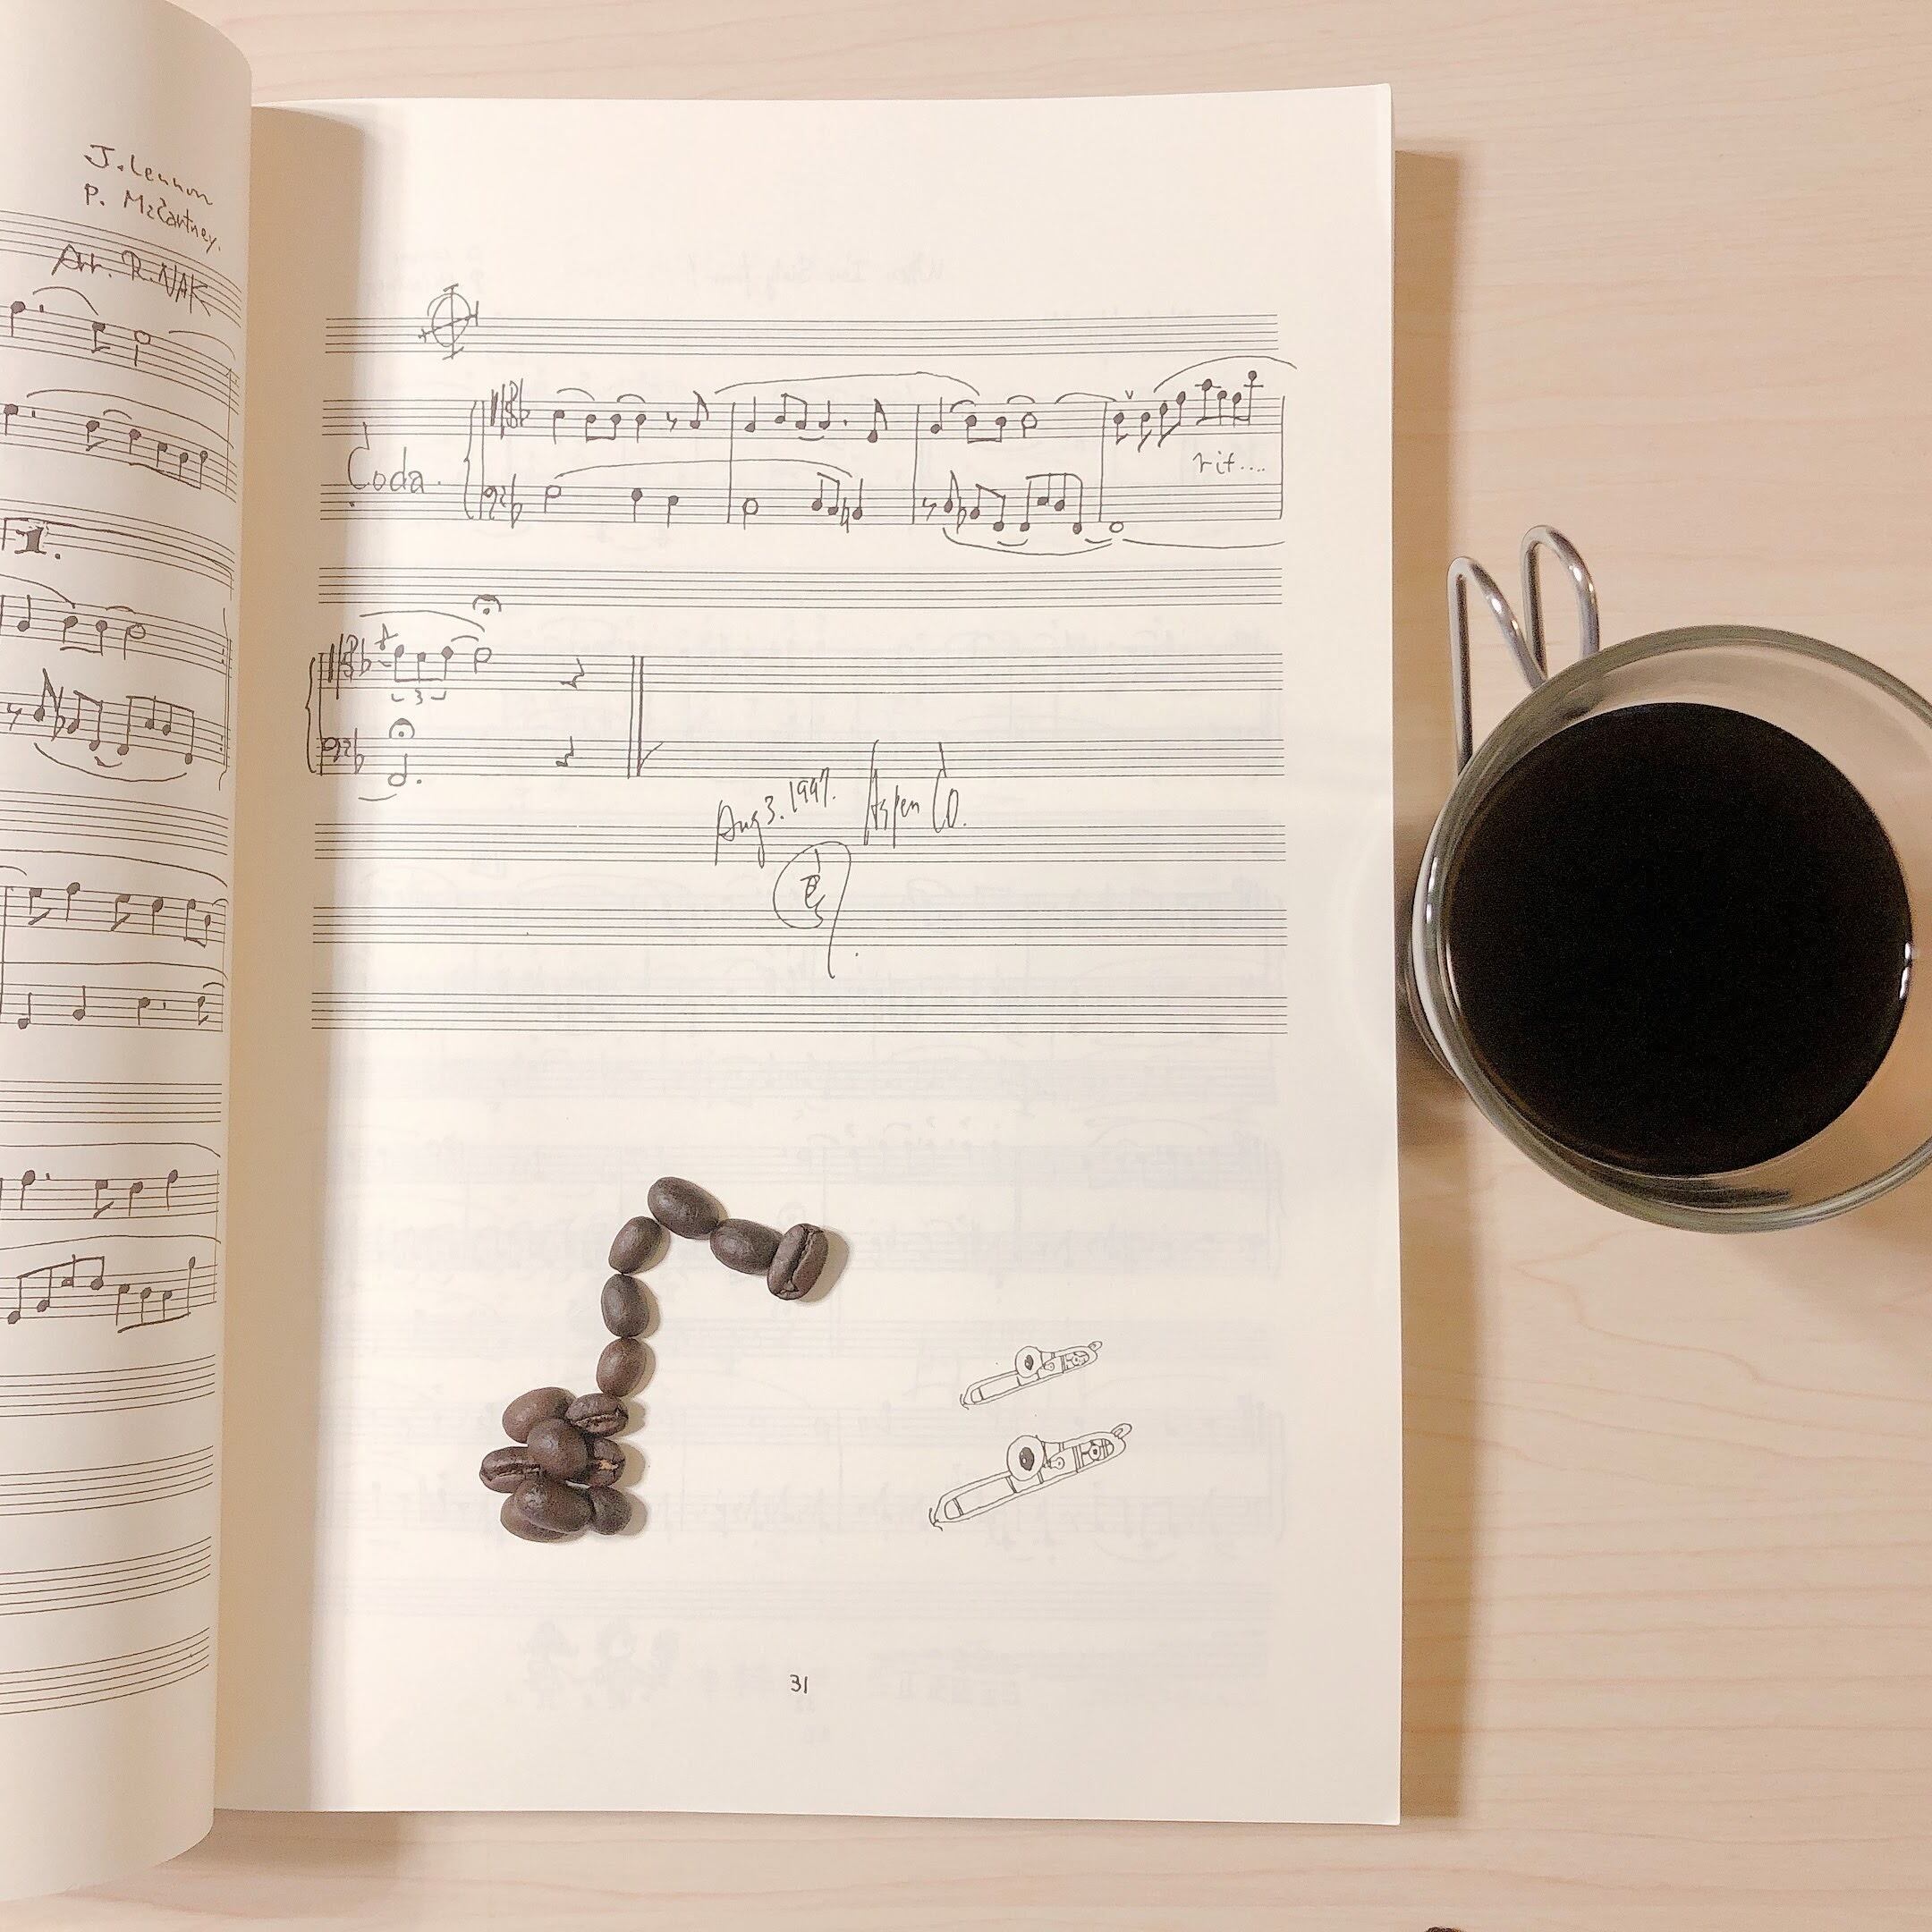 J. Lennon
P. McCartney.
Arr. R. NAK
1.
Coda.
rit....
3
Aug 3. 1997. Aspen CO.
31